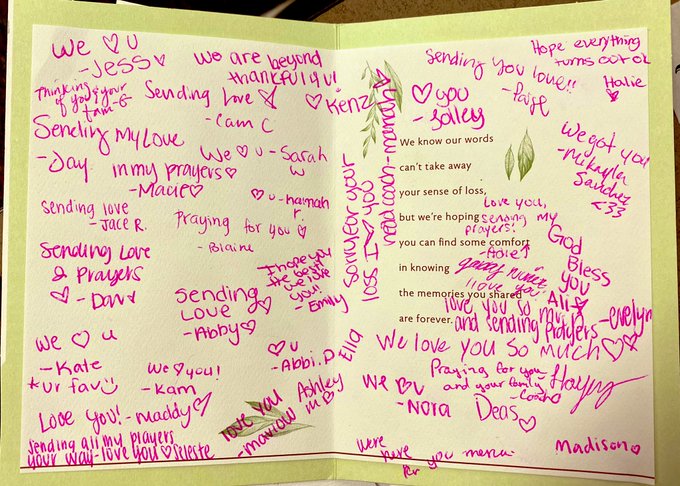 We ♡ U
- Jess ♡
we are beyond
thankful 4 u!
Thinking
of you & your
fam - G
Sending Love
- Cam C
♡ Kenz
Sending My Love
- Jay
in my prayers ♡
- Macie ♡
We ♡ u - Sarah
W
sending love
- Jace R.
Praying for you ♡
- Blaine
♡ u - hannah
r.
Sending Love
& Prayers
♡ - Dav
Sending
Love ♡
- Abby ♡
I hope you
the best
we love
you!!
- Emily
We ♡ u
- Kate
*ur fav :)
We ♡ you!
- Kam
♡ u
- Abbi. D
Love you! - maddy ♡
love you
- marlow
Ashley
m ♡
Ella
sending all my prayers
your way - love you ♡ Seleste
Sending you love!!
- Paige
Hope everything
turns out ok
Halie
♡
♡ you
- Saley
sorry for your
loss I ♡ you
We got you
- Mikayla
Sanchez
<33
We know our words
can't take away
your sense of loss,
but we're hoping
you can find some comfort
in knowing
the memories you shared
are forever.
Love you,
sending my
prayers!
I love you
God
Bless
you
Ali
love you so much
and sending prayers - evelyn
We love you so much ♡♡
Praying for you
and your family
- Coach
We ♡ u
- Nora
Deas ♡
were
here
for you
Madison ♡